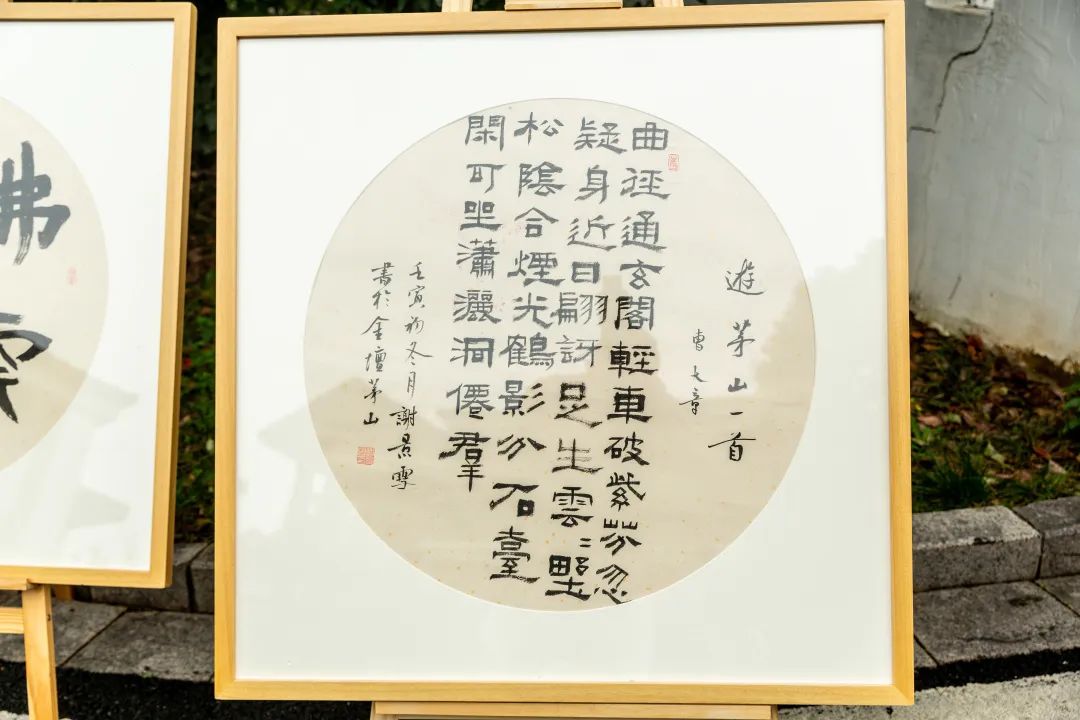 遊茅山一首
曹大章
曲徑通玄閣輕車破紫芬忽
疑身近日翩訝足生雲〻野
松陰合煙光鶴影分石臺
閑可坐瀟灑洞僊羣
壬寅初冬月謝景雪
書於金壇茅山